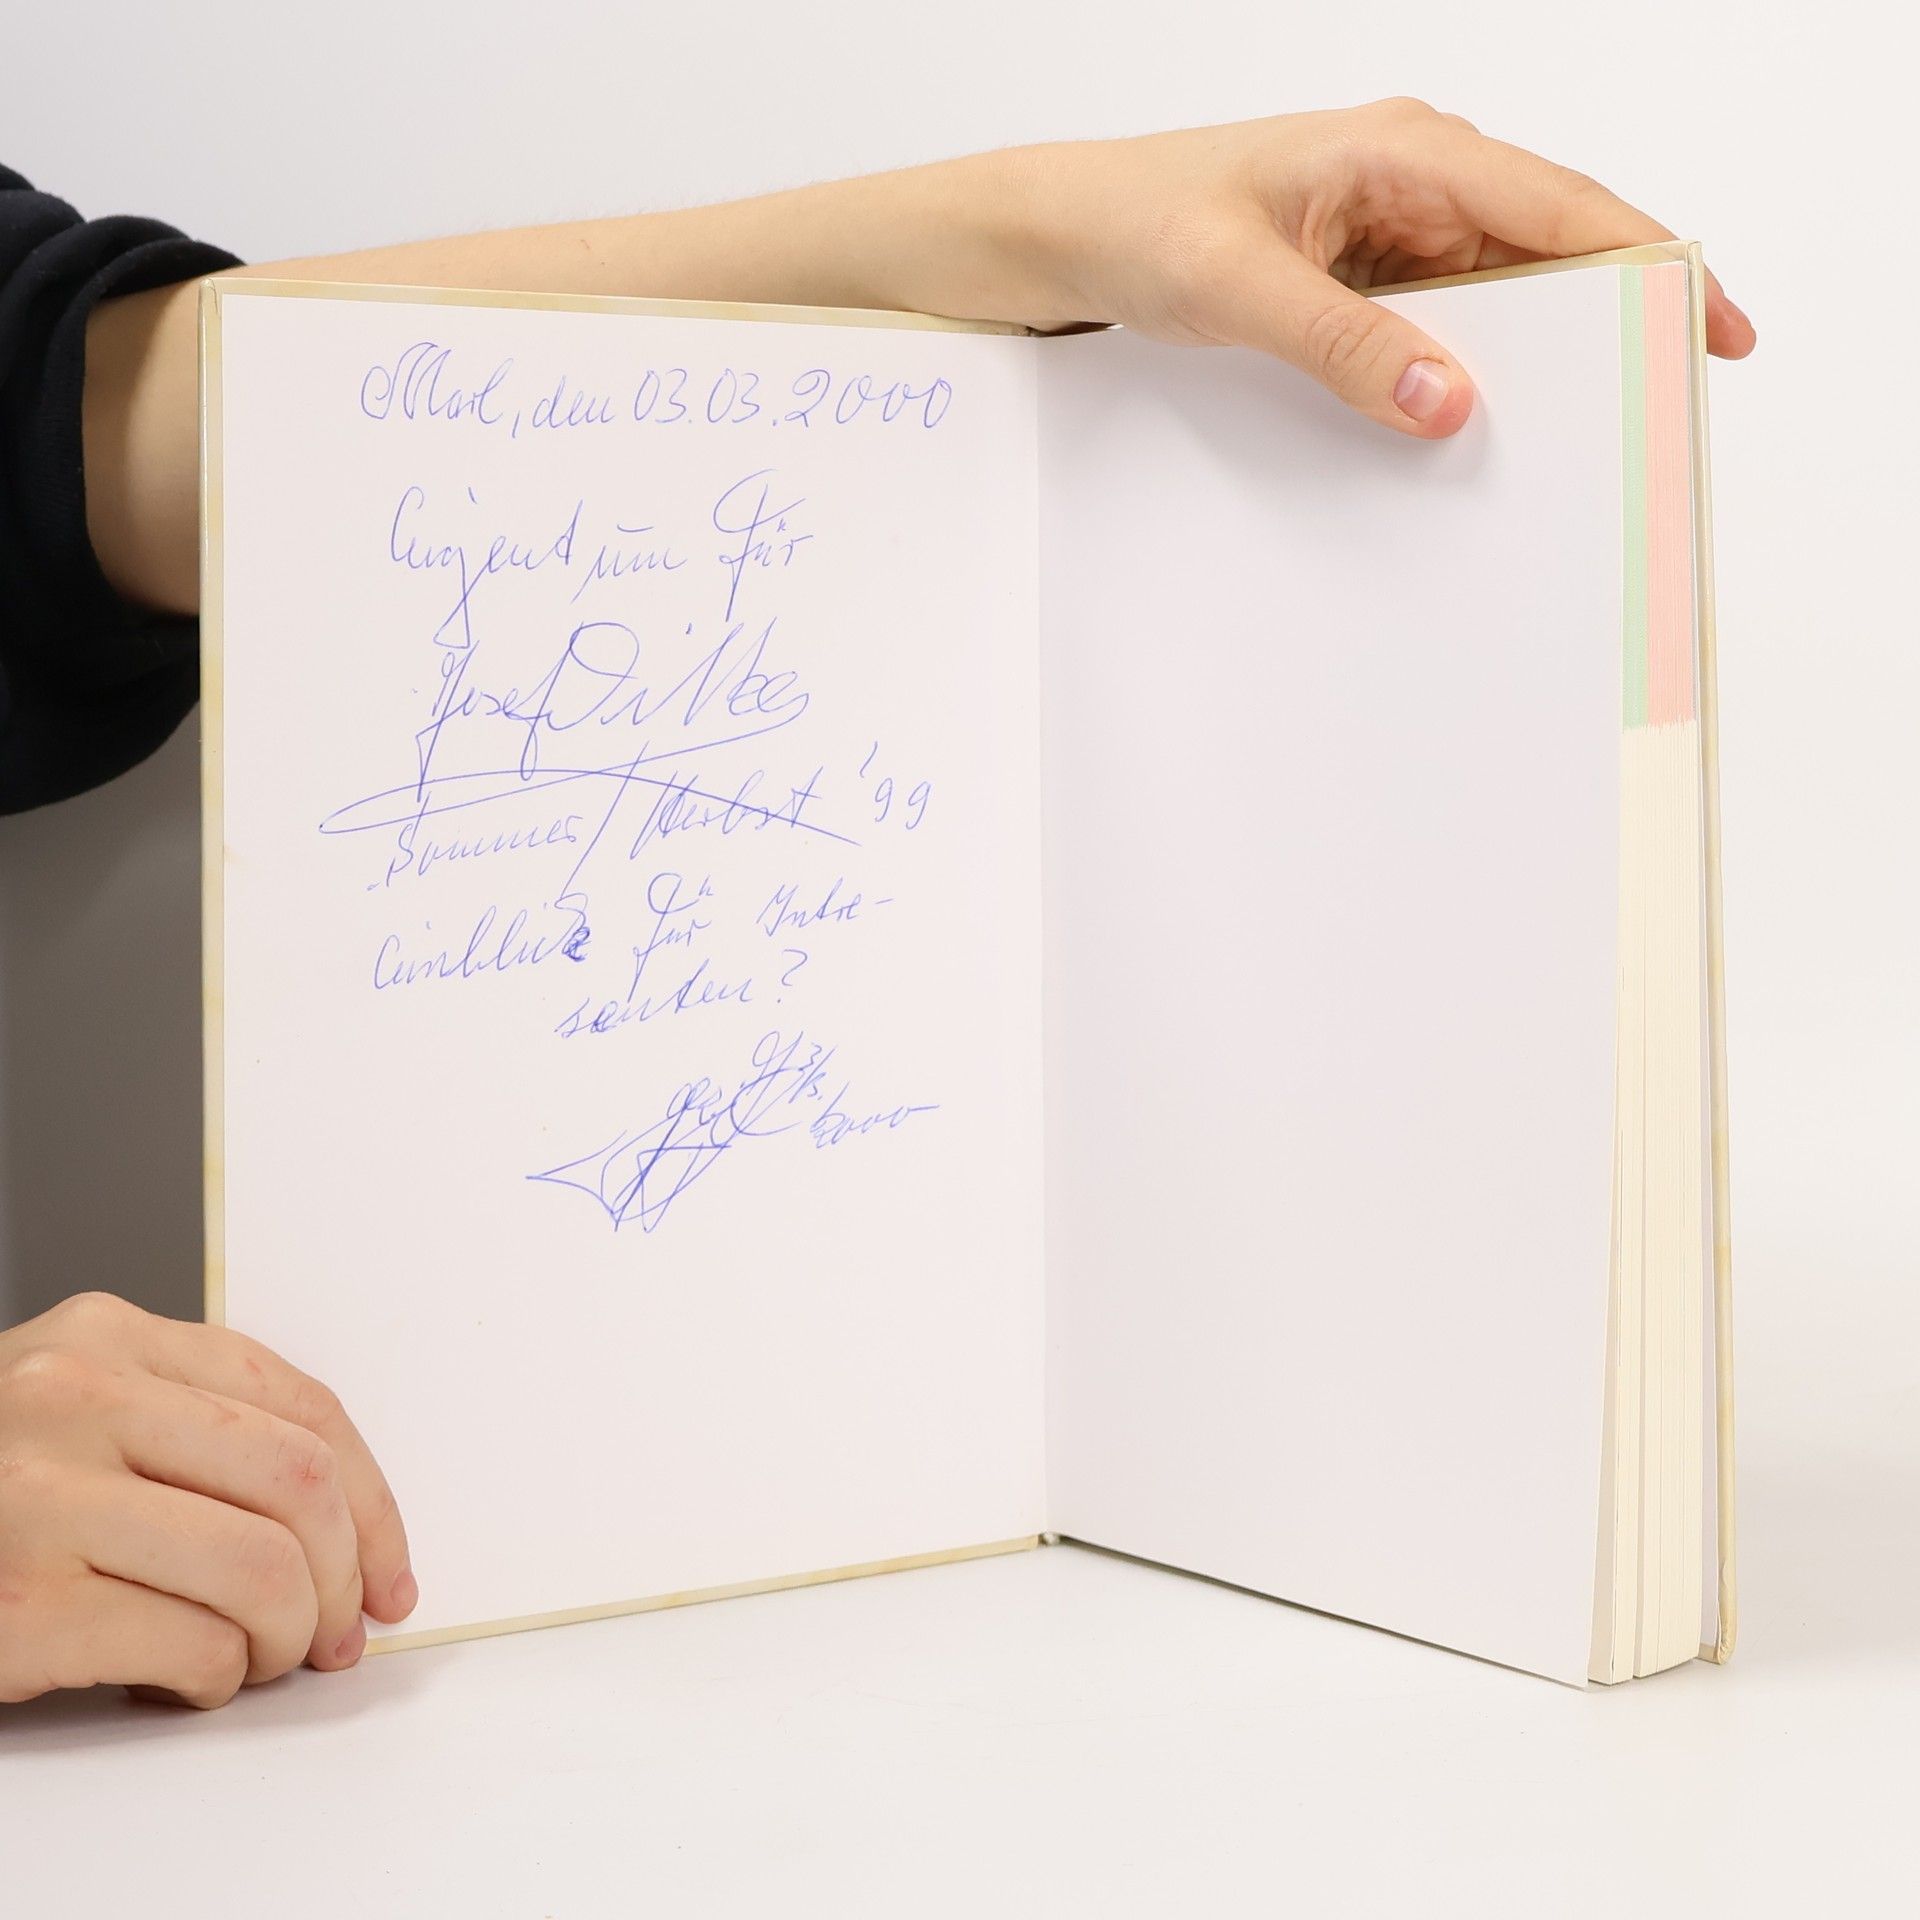 Marl, den 03.03.2000
Eigentum für
Josef
Sommer/Herbst '99
Einblick für Intre-
santen?
3/3.
2000